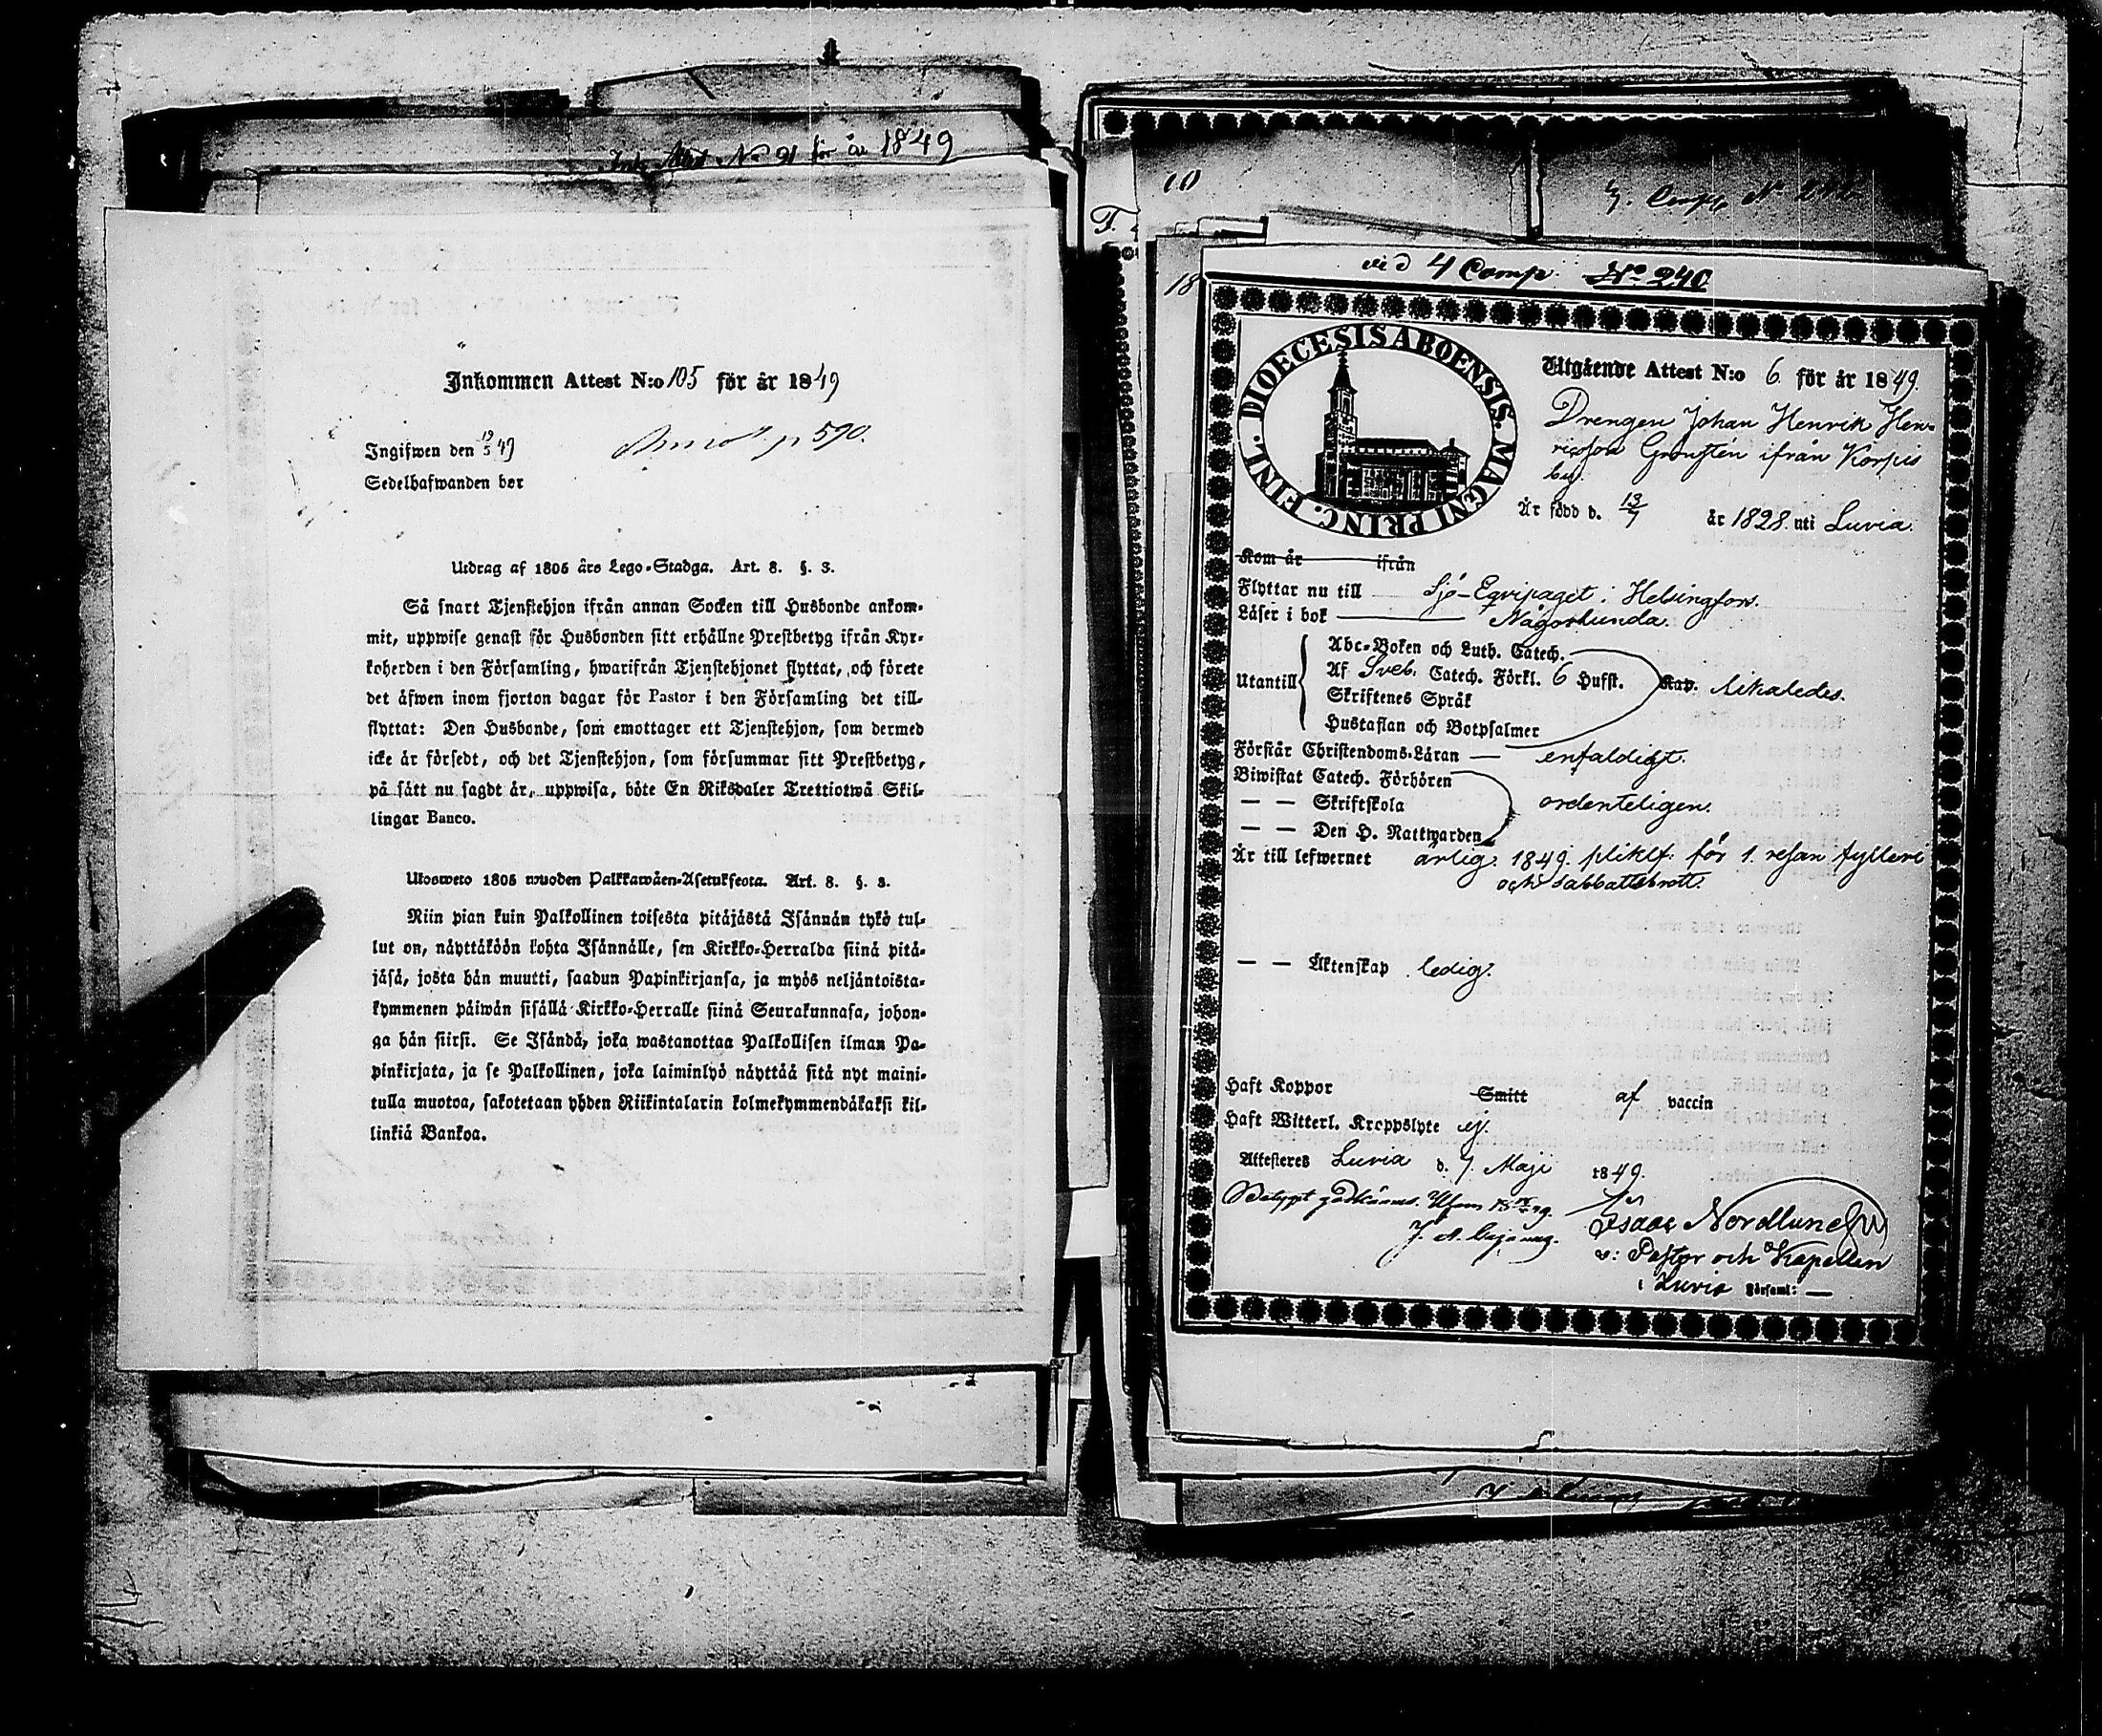 Att. No 91 för år 1849
Inkommen Attest N:o 105 för år 1849
Ingifwen den 19/5 49
p 590.
Sedelhafwanden bör
Utdrag af 1805 års Lego-Stadga. Art. 8. §. 3.
Så snart Tjenstehjon ifrån annan Socken till Husbonde ankom-
mit, uppwise genast för Husbonden sitt erhållne Prestbetyg ifrån Kyr-
koherden i den Församling, hwarifrån Tjenstehjonet flyttat, och förete
det äfwen inom fjorton dagar för Pastor i den Församling det till-
flyttat: Den Husbonde, som emottager ett Tjenstehjon, som dermed
icke är försedt, och det Tjenstehjon, som försummar sitt Prestbetyg,
på sätt nu sagdt är, uppwisa, böte En Riksdaler Trettiotwå Skil-
lingar Banco.
Ulosweto 1805 wuoden Palkkawäen-Asetuksesta. Art. 8. §. 3.
Niin pian kuin Palkollinen toisesta pitäjästä Isännän tykö tul-
lut on, näyttäköön kohta Isännälle, sen Kirkko-Herralda siinä pitä-
jäsä, josta hän muutti, saadun Papinkirjansa, ja myös neljäntoista-
kymmenen päiwän sisällä Kirkko-Herralle siinä Seurakunnasa, johon-
ga hän siirsi. Se Isändä, joka wastanottaa Palkollisen ilman Pa-
pinkirjata, ja se Palkollinen, joka laiminlyö näyttää sitä nyt maini-
tulla muotoa, sakotetaan yhden Riikintalarin kolmekymmendäkaksi kil-
linkiä Bankoa.
10
T.
18
vid 4 Comp. No 240
DIOECESIS ABOENSIS. MAGNI PRINC. FINL.
Utgående Attest N:o 6. för år 1849.
Drengen Johan Henrik Hen-
ricsson Gronstén ifrån Korpis
by.
Är född d. 13/7 år 1828. uti Luvia.
Kom år ifrån
Flyttar nu till Sjö-Eqvipaget i Helsingfors.
Läser i bok Någorlunda.
Utantill
Abc-Boken och Luth. Catech.
Af Sveb. Catech. Förkl. 6 Hufst.
Skriftenes Språk
Hustaflan och Botpsalmer
Kap. likaledes.
Förstår Christendoms-Läran — enfaldigt.
Biwistat Catech. Förhören
— — Skriftskola
— — Den H. Nattwarden
ordenteligen.
Är till lefwernet ärlig. 1849. plikt: för 1. resan fylleri
och sabbatsbrott.
— — Äktenskap ledig.
Haft Koppor Smitt af vaccin
Haft Witterl. Kroppslyte ej.
Attesteras Luvia d. 7. Maji 1849.
Betyget godkännes.
Isaac Nordlund
v: Pastor och Kapellan
i Luvia Församl: —